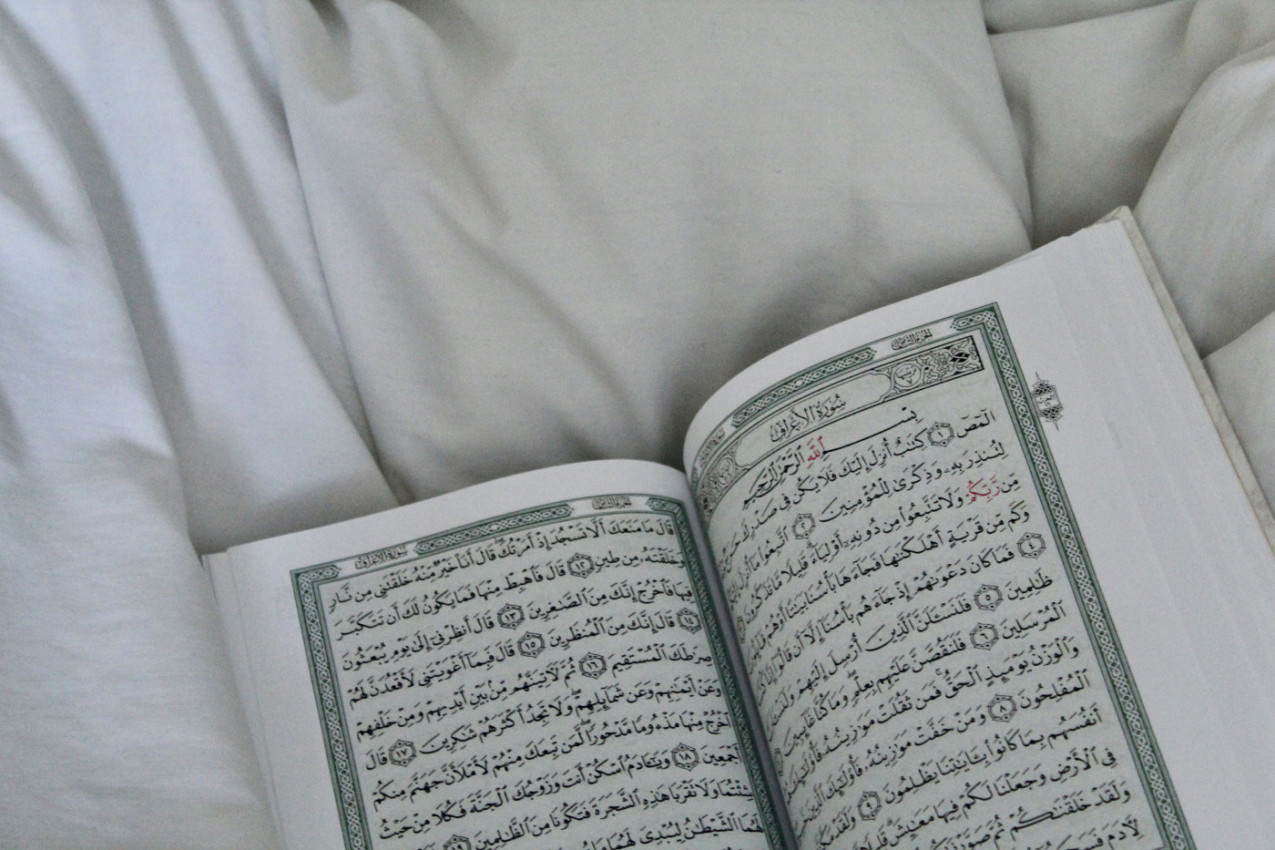 الجزء الثامن
سُورَةُ الأَعْرَافِ
بِسْمِ ٱللَّهِ ٱلرَّحْمَٰنِ ٱلرَّحِيمِ
الٓمٓصٓ ١ كِتَٰبٌ أُنزِلَ إِلَيْكَ فَلَا يَكُن فِى صَدْرِكَ حَرَجٌ
لِتُنذِرَ بِهِۦ وَذِكْرَىٰ لِلْمُؤْمِنِينَ ٢ ٱتَّبِعُوا۟ مَآ أُنزِلَ
مِّن رَّبِّكُمْ وَلَا تَتَّبِعُوا۟ مِن دُونِهِۦٓ أَوْلِيَآءَ قَلِيلًا مَّا تَذَكَّرُونَ
وَكَم مِّن قَرْيَةٍ أَهْلَكْنَٰهَا فَجَآءَهَا بَأْسُنَا بَيَٰتًا أَوْ هُمْ قَآئِلُونَ
٤ فَمَا كَانَ دَعْوَىٰهُمْ إِذْ جَآءَهُم بَأْسُنَآ إِلَّآ أَن قَالُوٓا۟ إِنَّا كُنَّا
ظَٰلِمِينَ ٥ فَلَنَسْـَٔلَنَّ ٱلَّذِينَ أُرْسِلَ إِلَيْهِمْ وَلَنَسْـَٔلَنَّ
ٱلْمُرْسَلِينَ ٦ فَلَنَقُصَّنَّ عَلَيْهِم بِعِلْمٍ وَمَا كُنَّا غَآئِبِينَ
وَٱلْوَزْنُ يَوْمَئِذٍ ٱلْحَقُّ فَمَن ثَقُلَتْ مَوَٰزِينُهُۥ فَأُو۟لَٰٓئِكَ
ٱلْمُفْلِحُونَ ٨ وَمَنْ خَفَّتْ مَوَٰزِينُهُۥ فَأُو۟لَٰٓئِكَ ٱلَّذِينَ
أَنفُسَهُم بِمَا كَانُوا۟ بِـَٔايَٰتِنَا يَظْلِمُونَ ٩ وَلَقَدْ
فِى ٱلْأَرْضِ وَجَعَلْنَا لَكُمْ فِيهَا مَعَٰيِشَ قَلِيلًا
وَلَقَدْ خَلَقْنَٰكُمْ ثُمَّ صَوَّرْنَٰكُمْ
لِـَٔادَمَ فَسَجَدُوٓا۟
الجزء الثامن
سورة الأعراف
قَالَ مَا مَنَعَكَ أَلَّا تَسْجُدَ إِذْ أَمَرْتُكَ قَالَ أَنَا۠ خَيْرٌ مِّنْهُ خَلَقْتَنِى مِن نَّارٍ
وَخَلَقْتَهُۥ مِن طِينٍ ١٢ قَالَ فَٱهْبِطْ مِنْهَا فَمَا يَكُونُ لَكَ أَن تَتَكَبَّرَ
فِيهَا فَٱخْرُجْ إِنَّكَ مِنَ ٱلصَّٰغِرِينَ ١٣ قَالَ أَنظِرْنِىٓ إِلَىٰ يَوْمِ يُبْعَثُونَ
١٤ قَالَ إِنَّكَ مِنَ ٱلْمُنظَرِينَ ١٥ قَالَ فَبِمَآ أَغْوَيْتَنِى لَأَقْعُدَنَّ لَهُمْ
صِرَٰطَكَ ٱلْمُسْتَقِيمَ ١٦ ثُمَّ لَـَٔاتِيَنَّهُم مِّنۢ بَيْنِ أَيْدِيهِمْ وَمِنْ خَلْفِهِمْ
وَعَنْ أَيْمَٰنِهِمْ وَعَن شَمَآئِلِهِمْ وَلَا تَجِدُ أَكْثَرَهُمْ شَٰكِرِينَ ١٧ قَالَ
ٱخْرُجْ مِنْهَا مَذْءُومًا مَّدْحُورًا لَّمَن تَبِعَكَ مِنْهُمْ لَأَمْلَأَنَّ جَهَنَّمَ مِنكُمْ
أَجْمَعِينَ ١٨ وَيَٰٓـَٔادَمُ ٱسْكُنْ أَنتَ وَزَوْجُكَ ٱلْجَنَّةَ فَكُلَا مِنْ حَيْثُ
شِئْتُمَا وَلَا تَقْرَبَا هَٰذِهِ ٱلشَّجَرَةَ فَتَكُونَا مِنَ ٱلظَّٰلِمِينَ ١٩
لَهُمَا ٱلشَّيْطَٰنُ لِيُبْدِىَ لَهُمَا